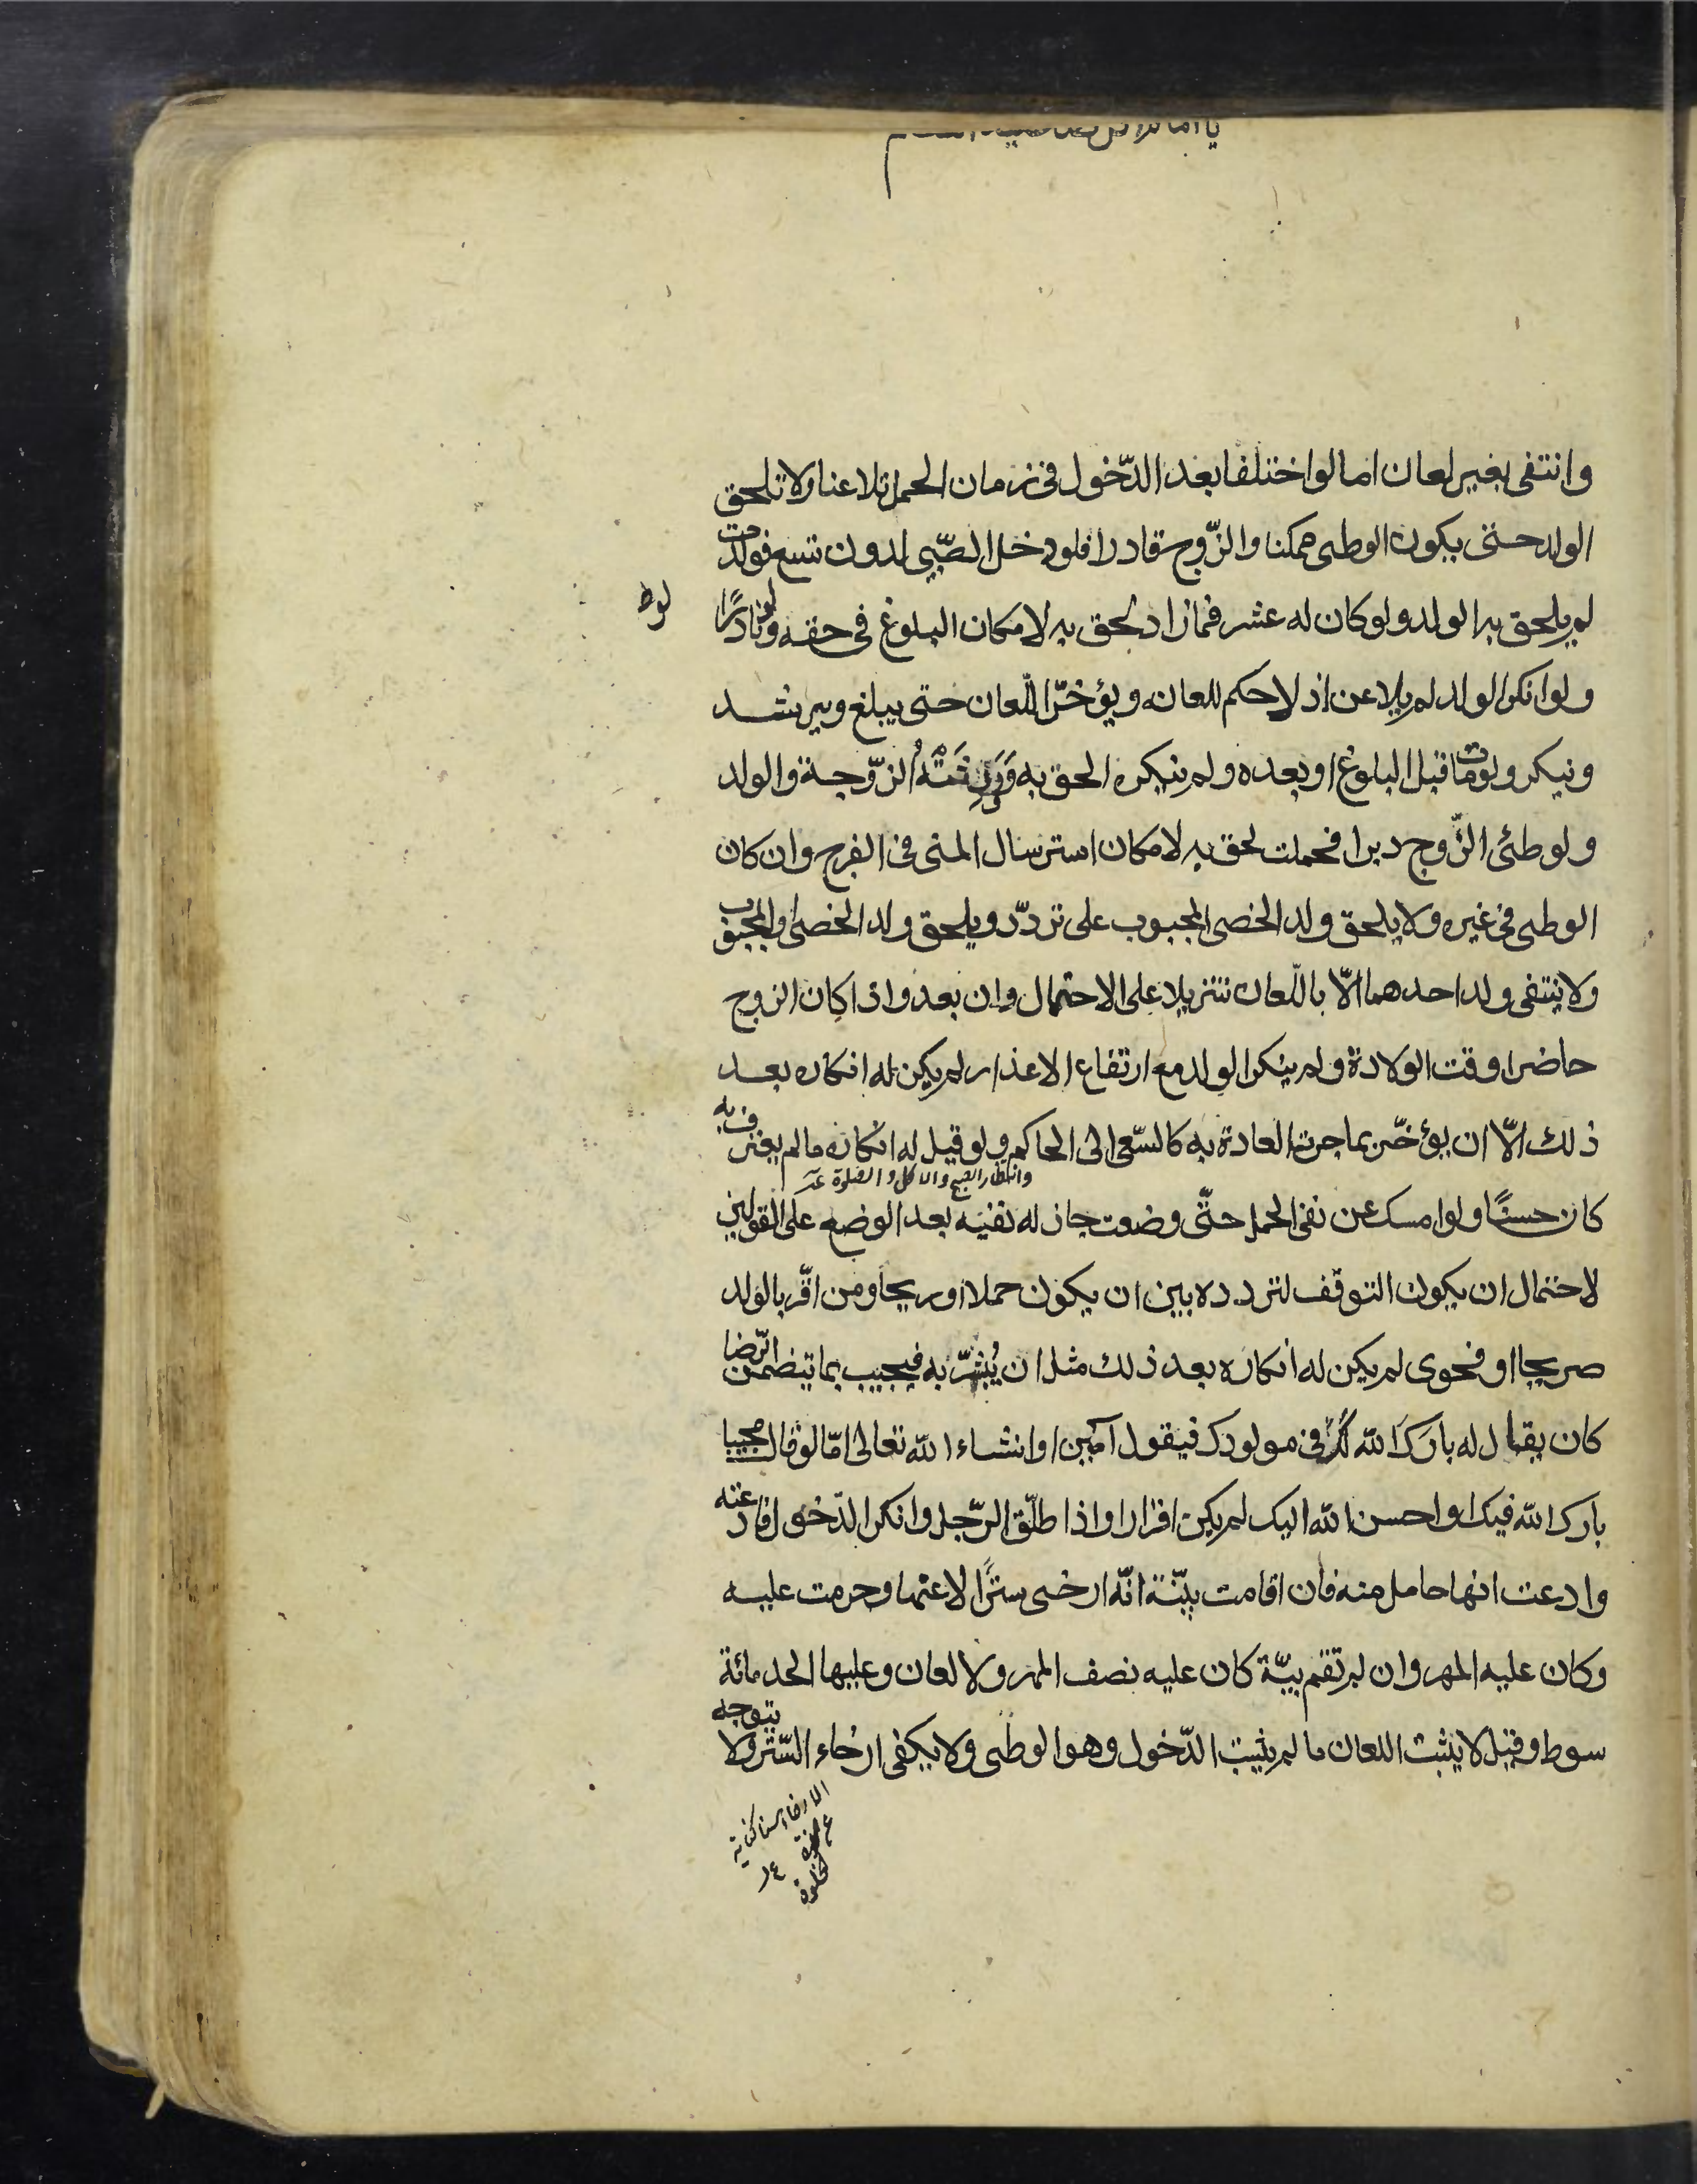 وانتفى بغير لعان اما لو اختلفا بعد الدّخول فى زمان الحمل تلاعنا ولا تلحق
الولد حتى يكون الوطى ممكنا والزّوج قادرا فلو دخل الصّبى لدون تسع فولدت
لم يلحق به الولد ولو كان له عشر فما زاد لحق به لامكان البلوغ فى حقه ولو نادرًا
ولو انكر الولد لم يلاعن اذ لا حكم للعانه ويؤخّر اللّعان حتى يبلغ ويرشد
وينكر ولو مات قبل البلوغ او بعده ولم ينكره الحق به وَوَرِثَتْهُ الزّوجة والولد
ولو طئى الزّوج دبرا فحملت لحق به لامكان استرسال المنى فى الفرج وان كان
الوطى فى غيره ولا يلحق ولد الخصى المجبوب على تردّد ويلحق ولد الخصى او المجبوب
ولا ينتفى ولد احدهما الّا باللّعان تنزيلا على الاحتمال وان بعد واذا كان الزوج
حاضرا وقت الولادة ولم ينكر الولد مع ارتفاع الاعذار لم يكن له انكاره بعد
ذلك الّا ان يؤخّر بما جرت العادة به كالسّعى الى الحاكم ولو قيل له انكاره ما لم يعترف به
وانتظار الصبح والاكل والصلوة
كان حسنًا ولو امسك عن نفى الحمل حتّى وضعت جاز له نفيه بعد الوضع على القولين
لاحتمال ان يكون التوقّف لتردده بين ان يكون حملا او ريحا ومن اقّر بالولد
صريحا او فحوى لم يكن له انكاره بعد ذلك مثل ان يُبشّر به فيجيب بما يتضمن الرّضا
كان يقال له بارَكَ الله لَكَ فى مولودك فيقول آمين او انشاء الله تعالى امّا لو قال مجيبا
بارك الله فيك او احسن الله اليك لم يكن اقرارا واذا طلّق الرّجل وانكر الدّخول فادعته
وادعت انها حامل منه فان اقامت بيّنة انّه ارخى سترًا لاعنها وحرمت عليه
وكان عليه المهر وان لم تقم بيّنة كان عليه نصف المهر ولا لعان وعليها الحد مائة
سوط وقيل لا يثبت اللعان ما لم يثبت الدّخول وهو الوطى ولا يكفى ارخاء السّتر ولا يتوجه